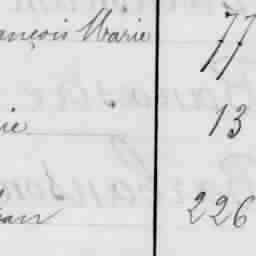 ançois Marie 77
ie 13
ean 226